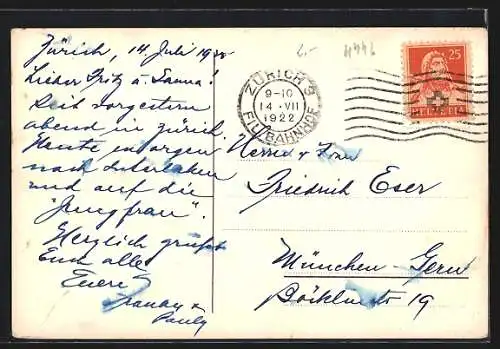 Zürich, 14. Juli 1922
Lieber Fritz u. Hanna!
Seit vorgestern
abend in Zürich.
Heute morgen
nach Interlaken
und auf die
"Jungfrau".
Herzlich grüsst
Euch alle
Euere
Pauly
4446
ZÜRICH 3
9-10
14.VII
1922
FIL. BAHNHOF
25
HELVETIA
Herrn u Frau
Friedrich Eser
München-Gern
Böcklinstr 19